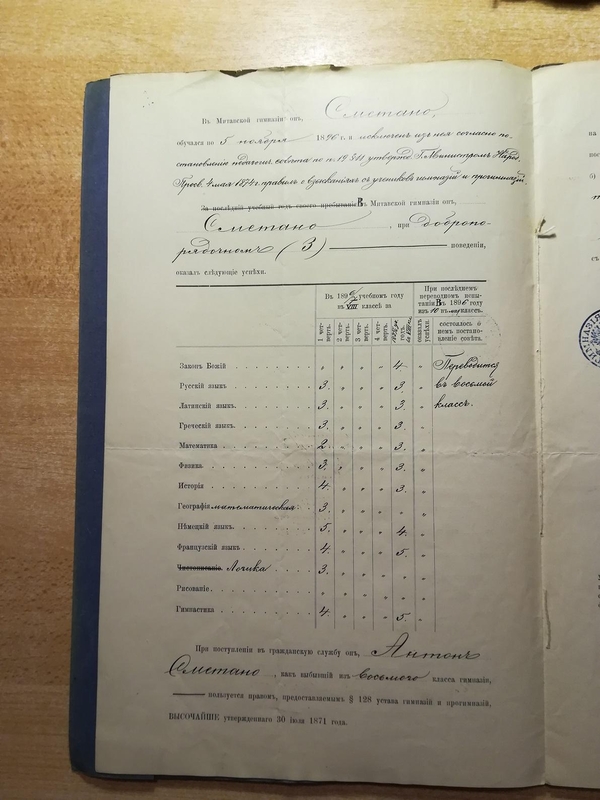 Въ Митавской гимназіи онъ, Сметано,
обучался по 5 ноября 1896 г. и исключенъ изъ нея согласно по-
становленію педагогич. совѣта по п. 19 § III утвержд. Г. Министромъ Народ.
Просв. 4 мая 1874 г. правилъ о взысканіяхъ съ учениковъ гимназій и прогимназій.
За послѣдній учебный годъ своего пребыванія Въ Митавской гимназіи онъ,
Сметано, при добропо-
рядочномъ (3) поведеніи,
оказалъ слѣдующіе успѣхи.
Въ 1896/7 учебномъ году
въ VIII классѣ за
При послѣднемъ
переводномъ испы-
таніи Въ 1896 году
изъ VII въ VIII классъ.
1 чет-
верть.
2 чет-
верть.
3 чет-
верть.
4 чет-
верть.
годъ.
оказалъ
успѣхи.
состоялось о
немъ постано-
вленіе совѣта.
Законъ Божій „ „ „ „ 4. „ Переводится
Русскій языкъ 3. „ „ „ 3. „ въ восьмой
Латинскій языкъ. 3. „ „ „ 3. „ классъ.
Греческій языкъ. 3. „ „ „ 3. „
Математика 2. „ „ „ 3. „
Физика 3. „ „ „ 3. „
Исторія 4. „ „ „ 3. „
Географія математическая. 3. „ „ „ „ „
Нѣмецкій языкъ. 5. „ „ „ 4. „
Французскій языкъ 4. „ „ „ 5. „
Чистописаніе Логика 3. „ „ „ „ „
Рисованіе „ „ „ „ „ „
Гимнастика 4. „ „ „ 5. „
При поступленіи въ гражданскую службу онъ, Антонъ
Сметано, какъ выбывшій изъ восьмого класса гимназіи,
пользуется правомъ, предоставляемымъ § 128 устава гимназій и прогимназій,
ВЫСОЧАЙШЕ утвержденнаго 30 іюля 1871 года.